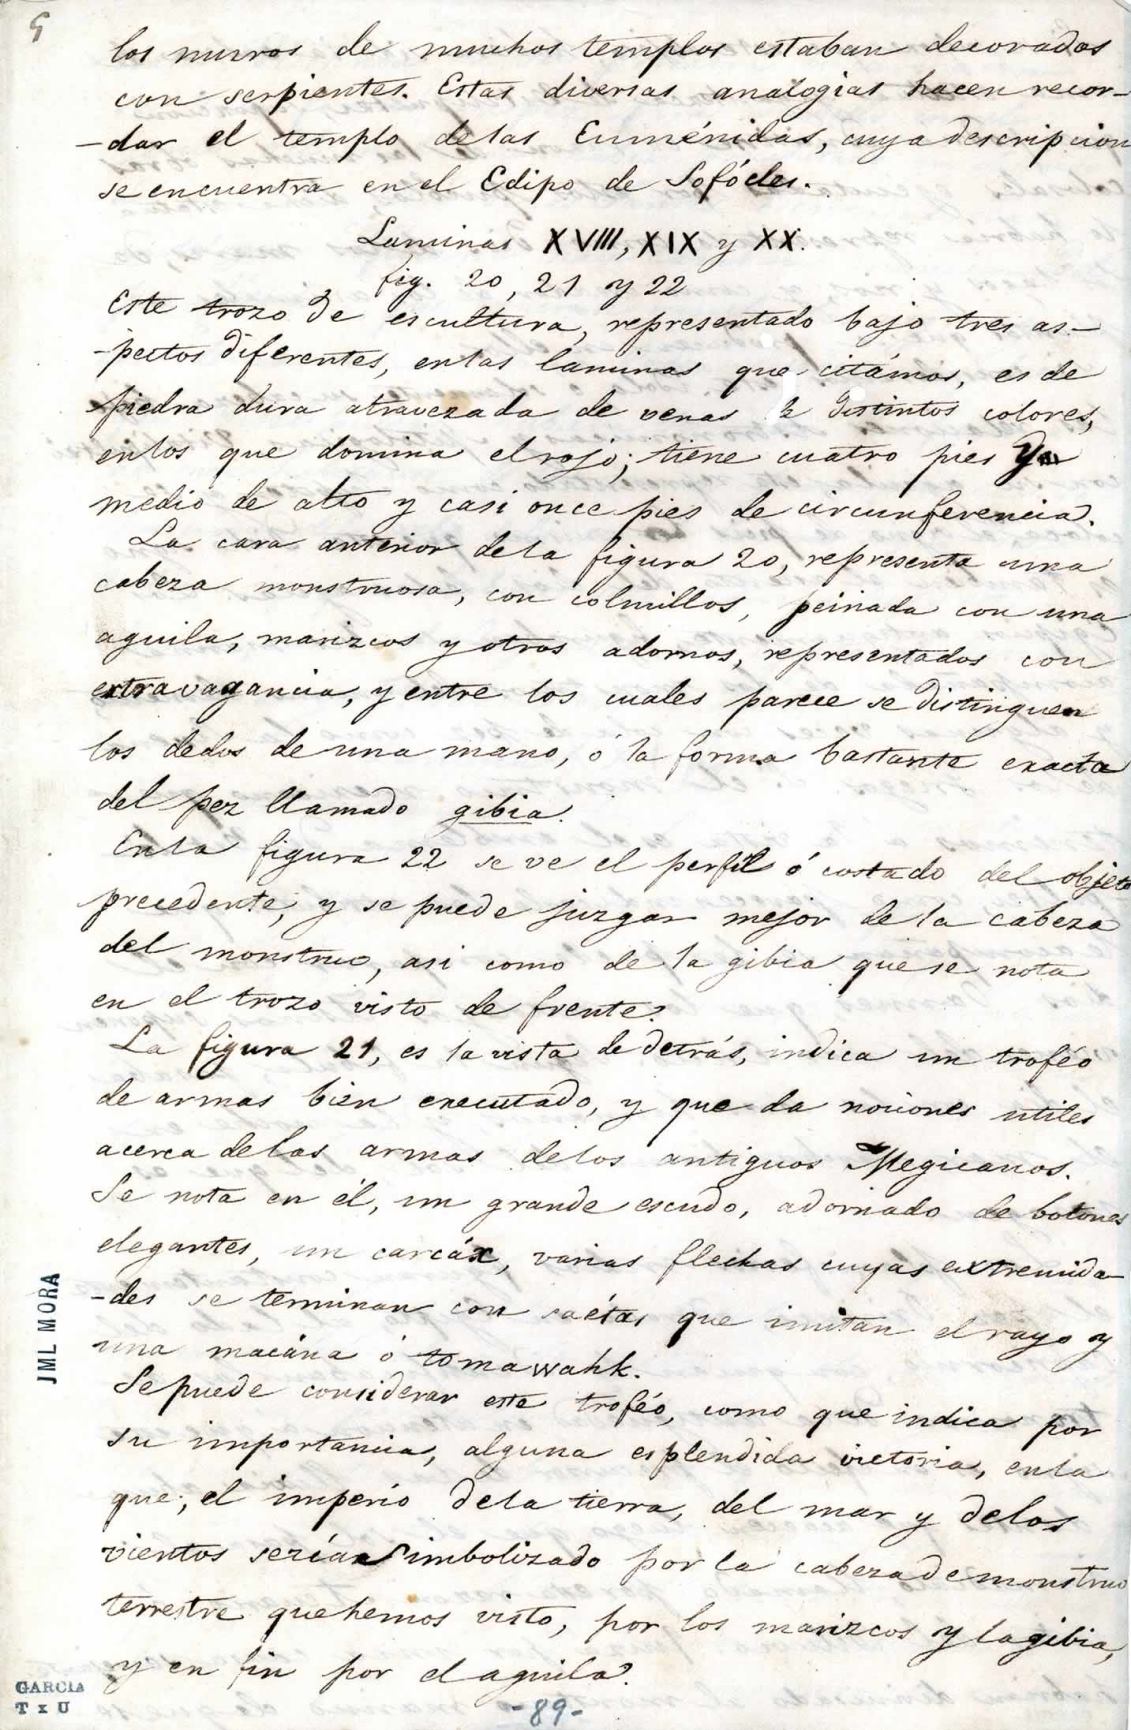 5
los muros de muchos templos estaban decorados
con serpientes. Estas diversas analogias hacen recor-
-dar el templo de las Euménidas, cuya descripcion
se encuentra en el Edipo de Sofócles.
Laminas XVIII, XIX y XX.
fig. 20, 21 y 22
Este trozo de escultura, representado bajo tres as-
-pectos diferentes, en las laminas que citámos, es de
piedra dura atravezada de venas de distintos colores,
en los que domina el rojo; tiene cuatro pies y
medio de alto y casi once pies de circunferencia.
La cara anterior de la figura 20, representa una
cabeza monstruosa, con colmillos, peinada con una
aguila, marizcos y otros adornos, representados con
extravagancia, y entre los cuales parece se distinguen
los dedos de una mano, ó la forma bastante exacta
del pez llamado gibia.
En la figura 22 se ve el perfil ó costado del objeto
precedente, y se puede juzgar mejor de la cabeza
del monstruo, asi como de la gibia que se nota
en el trozo visto de frente.
La figura 21, es la vista de detrás, indica un troféo
de armas bién executado, y que da nociones utiles
acerca de las armas de los antiguos Megicanos.
Se nota en él, un grande escudo, adornado de botones
elegantes, un carcáx, varias flechas cuyas extremida-
-des se terminan con saétas que imitan el rayo y
una macána ó tomawahk.
Se puede considerar este troféo, como que indica por
su importancia, alguna esplendida victoria, en la
que, el imperio de la tierra, del mar y de los
vientos serían simbolizado por la cabeza de monstruo
terrestre que hemos visto, por los marizcos y la gibia,
y en fin por el aguila.
-89-
JML MORA
GARCIA
T x U